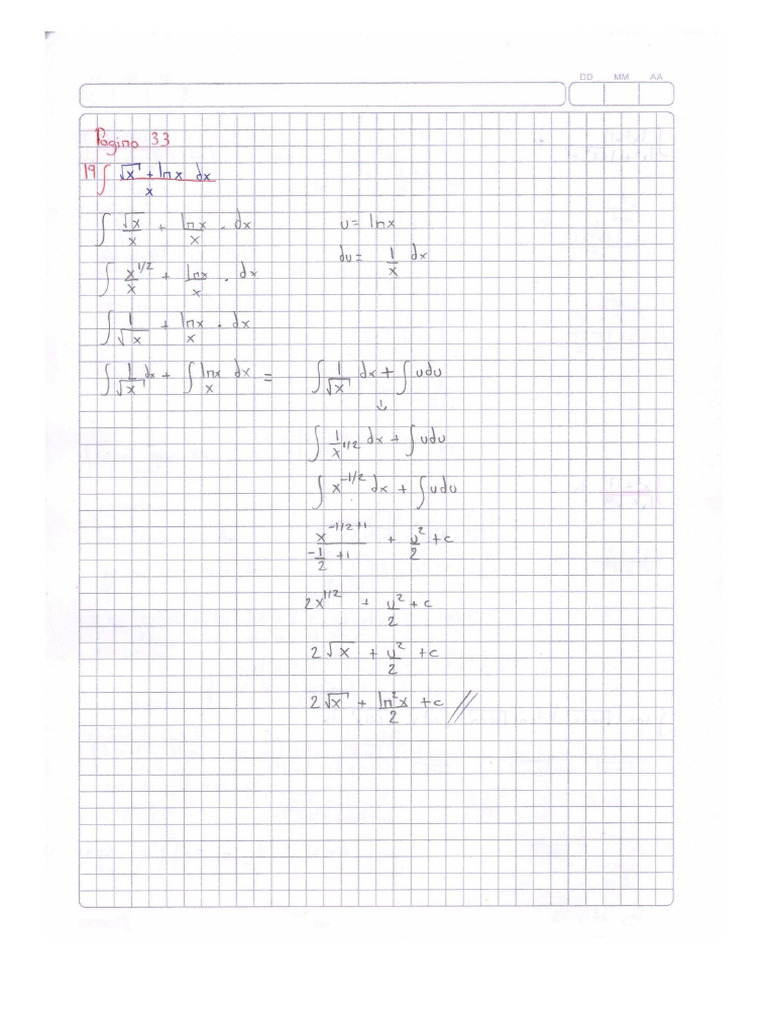 DD MM AA
Pagina 33
19 ∫ √x + ln x dx / x
∫ √x/x + lnx/x . dx u = lnx
du = 1/x dx
∫ x^1/2/x + lnx/x . dx
∫ 1/√x + lnx/x . dx
∫ 1/√x dx + ∫ lnx/x dx = ∫ 1/√x dx + ∫ udu
↓
∫ 1/x^1/2 dx + ∫ udu
∫ x^-1/2 dx + ∫ udu
x^-1/2+1 / -1/2 +1 + u²/2 + c
2x^1/2 + u²/2 + c
2√x + u²/2 + c
2√x + ln²x/2 + c //